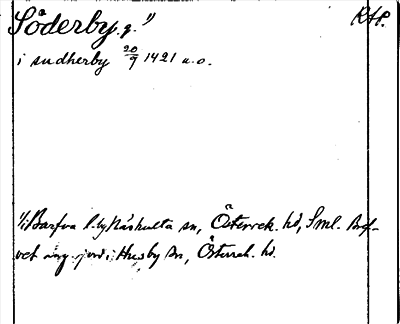 Söderby g. 1) RAP.
i sudherby 20/9 1421 a.o.
1) i Barfva l. by Näshulta sn, Österrek. hd, Sml. Bref-
vet ang. jord i Husby sn, Österrek. hd.